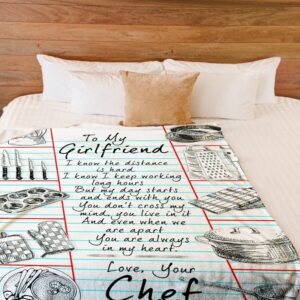 To My
Girlfriend
I know the distance
is hard
I know I keep working
long hours
But my day starts
and ends with you
You don't cross my
mind, you live in it
And even when we
are apart
You are always
in my heart.
Love, Your
Chef